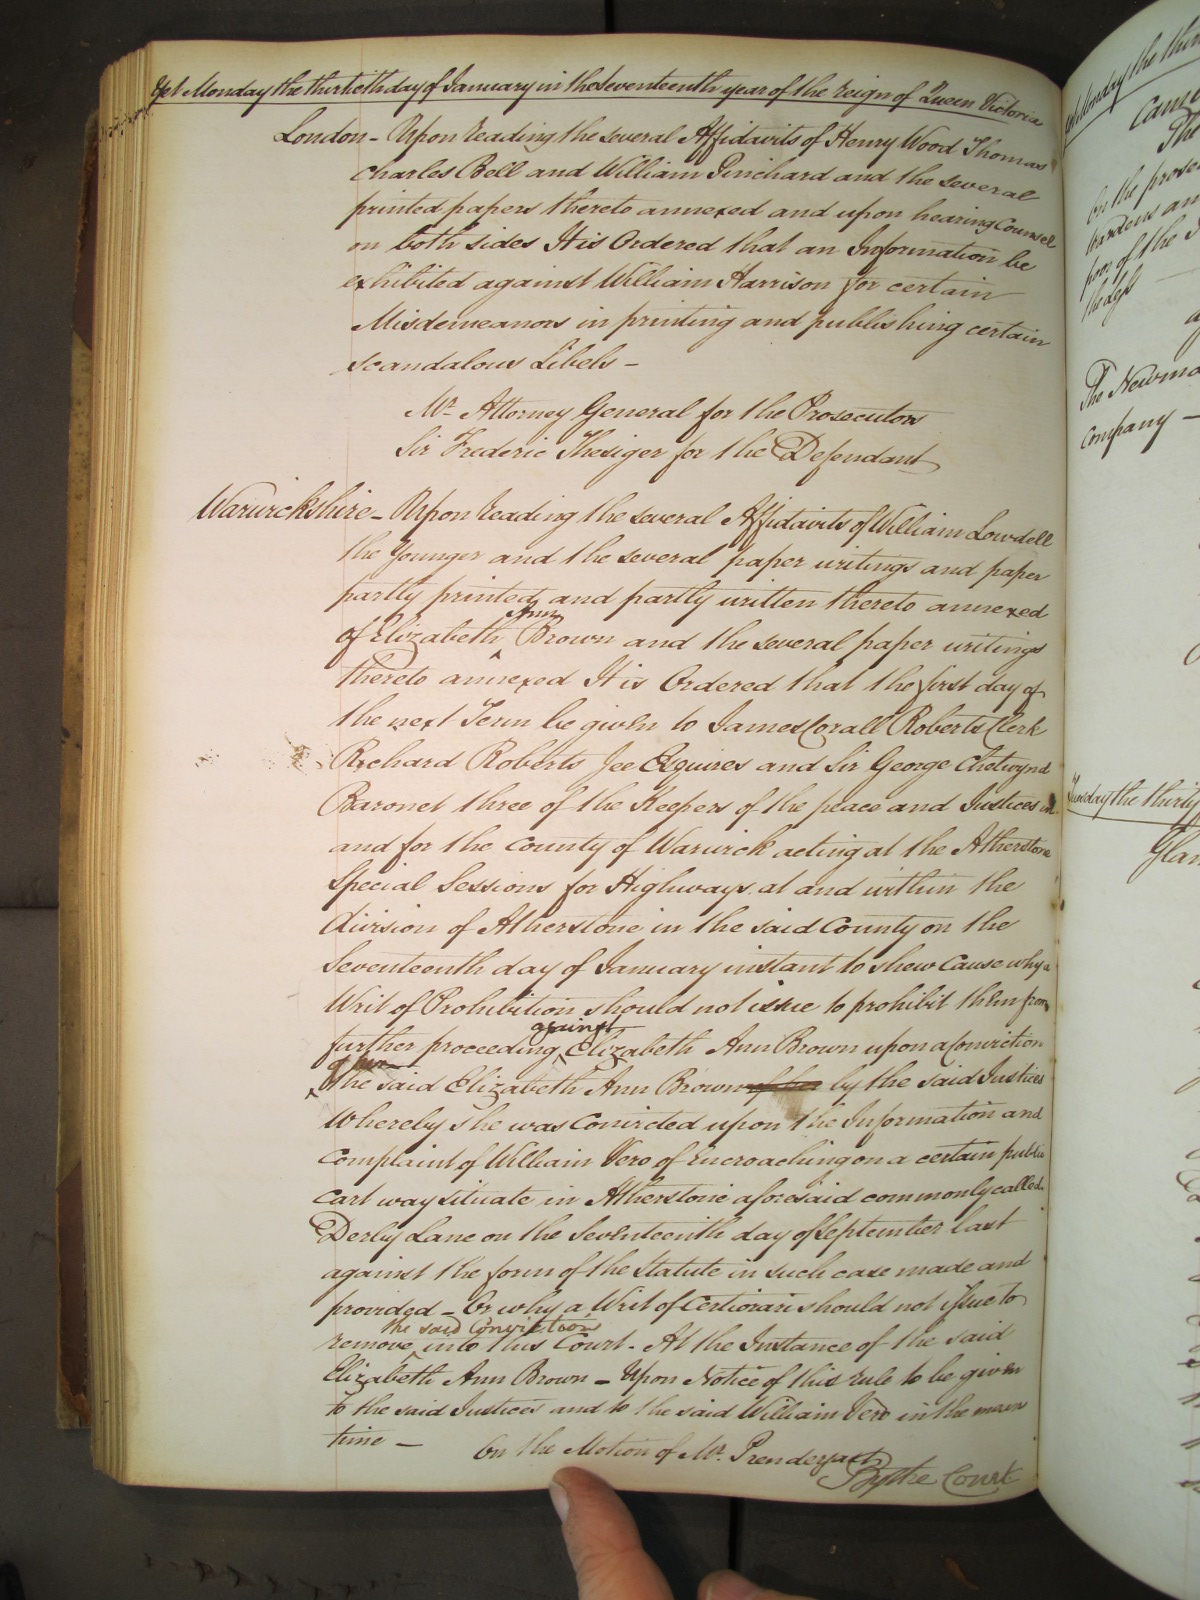 Yet Monday the thirtieth day of January in the Seventeenth year of the reign of Queen Victoria
London - Upon reading the several Affidavits of Henry Wood Thomas
Charles Bell and William Pinchard and the several
printed papers thereto annexed and upon hearing Counsel
on both sides It is Ordered that an Information be
exhibited against William Harrison for certain
Misdemeanors in printing and publishing certain
scandalous Libels -
Mr. Attorney General for the Prosecutors
Sir Frederic Thesiger for the Defendant
Warwickshire - Upon reading the several Affidavits of William Lowdell
the Younger and the several paper writings and paper
partly printed and partly written thereto annexed
Ann
of Elizabeth Brown and the several paper writings
thereto annexed It is Ordered that the first day of
the next Term be given to James Corall Roberts Clerk
Richard Roberts Jee Esquires and Sir George Chetwynd
Baronet three of the Keepers of the peace and Justices in
and for the County of Warwick acting at the Atherstone
Special Sessions for Highways at and within the
division of Atherstone in the said County on the
Seventeenth day of January instant to shew Cause why a
Writ of Prohibition should not issue to prohibit them from
against
further proceeding Elizabeth Ann Brown upon a Conviction
of her
the said Elizabeth Ann Brown of her by the said Justices
Whereby she was Convicted upon the Information and
Complaint of William Vero of Encroaching on a certain public
Cart way situate in Atherstone aforesaid commonly called
Derby Lane on the Seventeenth day of September last
against the form of the Statute in such case made and
provided - Or why a Writ of Certiorari should not issue to
the said Conviction
remove into this Court - At the Instance of the said
Elizabeth Ann Brown - Upon Notice of this rule to be given
to the said Justices and to the said William Vero in the mean
time -
On the Motion of Mr. Prendergast
By the Court
Monday the
The
On the
poor of the
The Newma
Company -
Tuesday the thirty
Glam